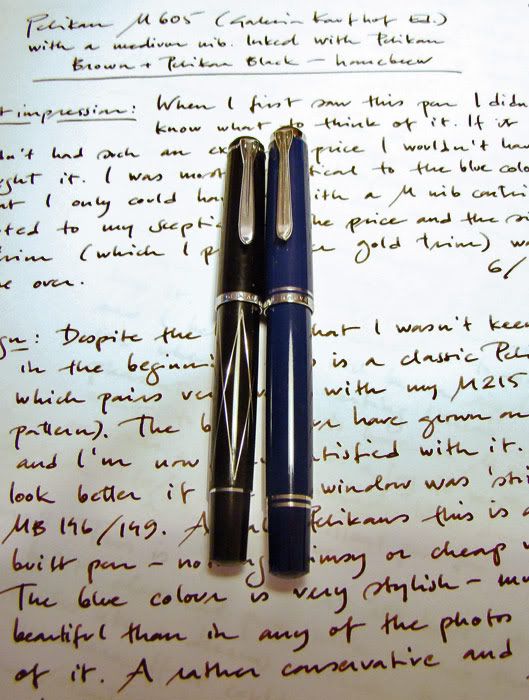 Pelikan M605 (Galeria Kaufhof Ed.)
with a medium nib. Inked with Pelikan
Brown + Pelikan Black - homebrew
t impression: When I first saw this pen I didn
know what to think of it. If it
dn't had such an ex price I wouldn't hav
ught it. I was most tical to the blue colo
at I only could ha with a M nib contri
ted to my skepti he price and the s
trim (which I p r gold trim) w
e over. 6/
gn: Despite the hat I wasn't keen
in the beginni s is a classic Peli
which pairs ver with my M215
pattern). The b have grown on
and I'm now atisfied with it.
look better if window was 'st
MB 146/149. A Pelikans this is a
built pen - no g imsy or cheap
The blue colour is very stylish - mu
beautiful than in any of the photos
of it. A rather conservative and